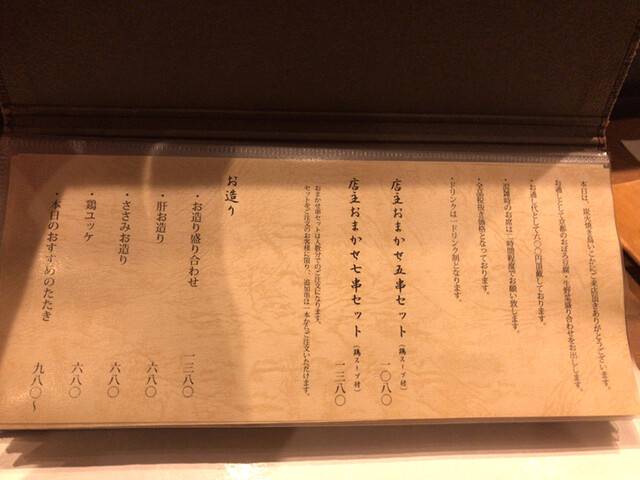 本日は、炭火焼き鳥いこかにご来店頂きありがとうございます。
お通しとして京都のおぼろ豆腐・生野菜盛り合わせをお出しします。
・お通し代として六〇〇円頂戴しております。
・混雑時のお席は二時間程度でお願い致します。
・全品税抜き価格となっております。
・ドリンクは一ドリンク制となります。
店主おまかせ五串セット（鶏スープ付） 一〇八〇
店主おまかせ七串セット（鶏スープ付） 一三八〇
おまかせ串セットは人数分でのご注文になります。
セットをご注文のお客様に限り、追加串は一本からご注文いただけます。
お造り
・お造り盛り合わせ 一三八〇
・肝お造り 六八〇
・ささみお造り 六八〇
・鶏ユッケ 六八〇
・本日のおすすめのたたき 九八〇〜